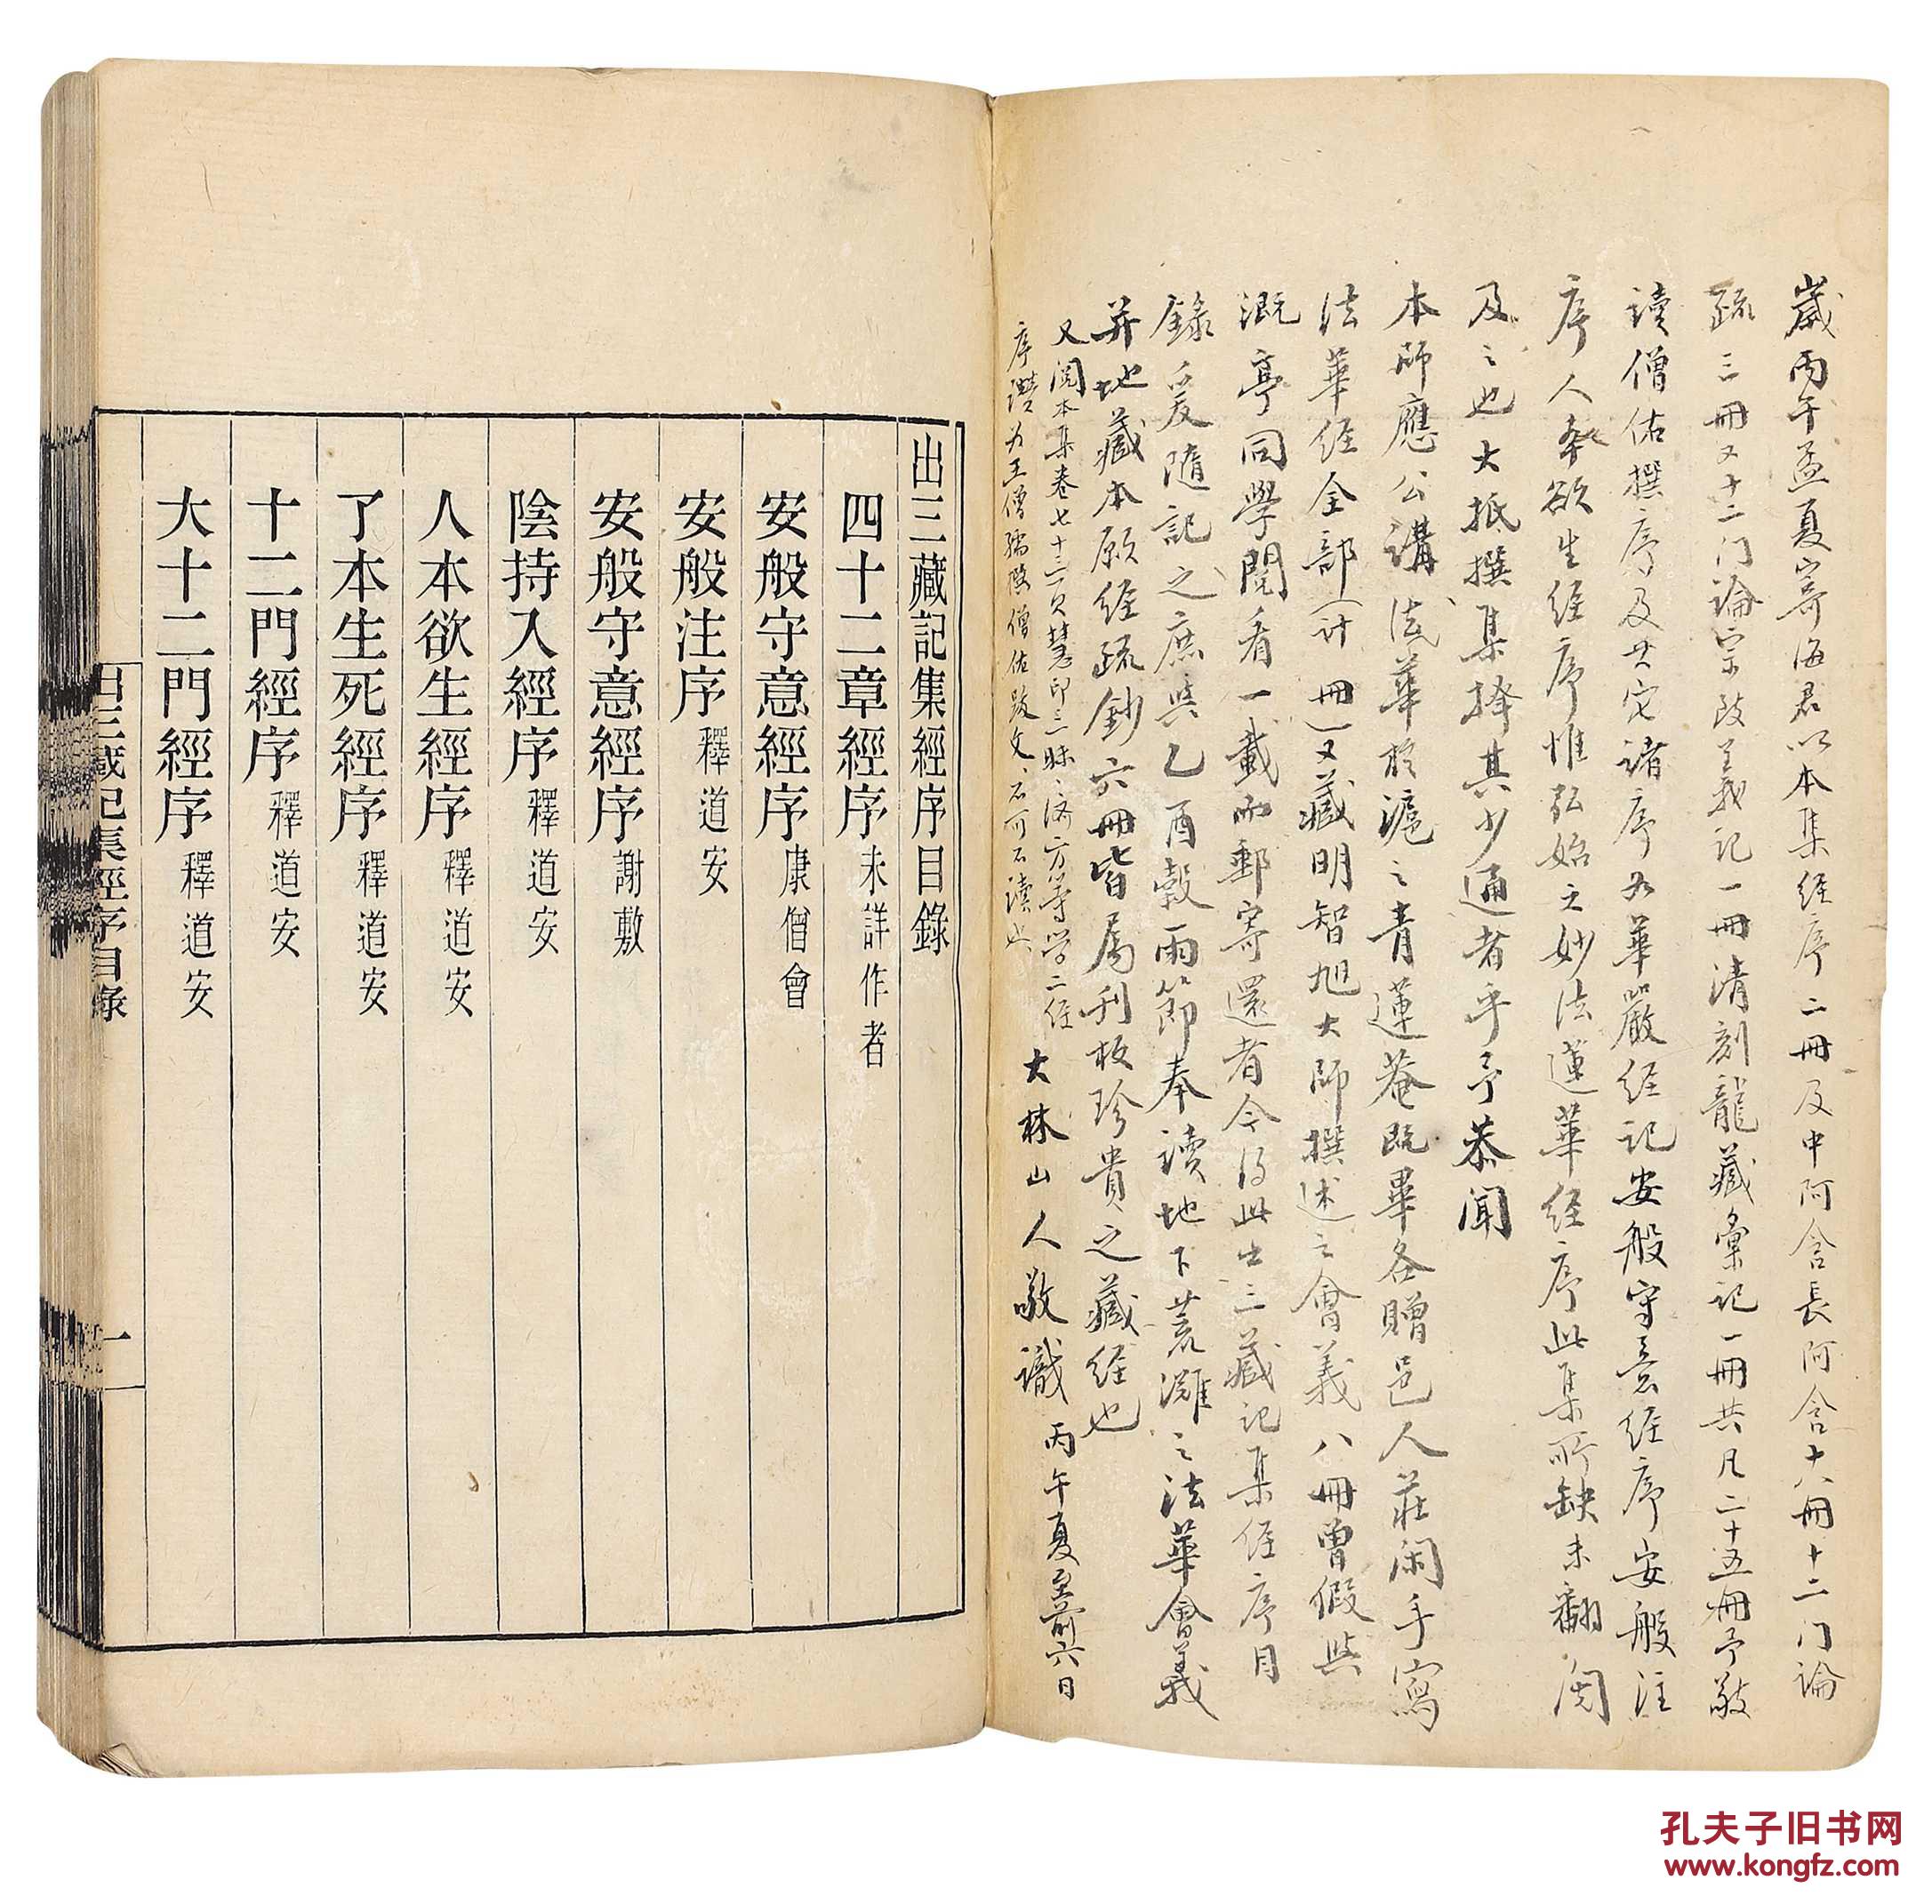 歲丙午孟夏寄海君以本集經序二冊及中阿含長阿含十六冊十二门論
疏三冊又十二门論宗致義記一冊清刻龍藏彙記一冊共凡二十五冊予敬
读僧佑撰序及其它诸序如華嚴经记安般守意经序安般注
序人本欲生经序惟弘始之妙法蓮華经序此集所缺未翻阅
及之也大抵撰集择其少通者乎予恭闻
本師應公講法華於滬之青蓮菴既畢各贈邑人莊闲手寫
法華经全部（计一冊）又藏明智旭大師撰述之會義八冊曾假與
溉亭同學閱看一載而郵寄還者今得此出三藏记集经序目
錄爰隨記之庶與乙酉穀雨節奉读地下荒灘之法華會義
并地藏本願经疏鈔六冊皆属刊板珍貴之藏经也
又阅本集卷七十三页慧印三昧之濟方等学二经
序讚为王僧孺作僧佑跋文不可不读也
大林山人敬識 丙午夏至前六日
出三藏記集經序目錄
四十二章經序 未詳作者
安般守意經序 康僧會
安般注序 釋道安
安般守意經序 謝敷
陰持入經序 釋道安
人本欲生經序 釋道安
了本生死經序 釋道安
十二門經序 釋道安
大十二門經序 釋道安
出三藏記集經序目錄
一
孔夫子旧书网
www.kongfz.com